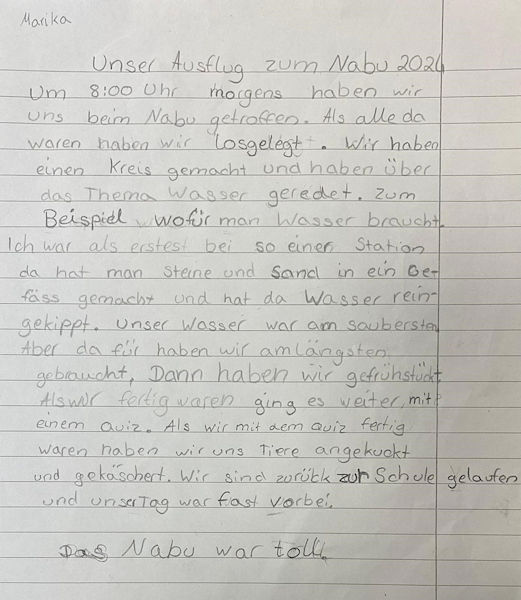 Marika
Unser Ausflug zum Nabu 2024
Um 8:00 Uhr morgens haben wir
uns beim Nabu getroffen. Als alle da
waren haben wir losgelegt. Wir haben
einen Kreis gemacht und haben über
das Thema Wasser geredet. Zum
Beispiel wofür man Wasser braucht.
Ich war als erstest bei so einer Station
da hat man Steine und Sand in ein Ge-
fäss gemacht und hat da Wasser rein-
gekippt. Unser Wasser war am saubersten
Aber da für haben wir amlängsten
gebraucht, Dann haben wir gefrühstückt
Als wir fertig waren ging es weiter, mit
einem Quiz. Als wir mit dem Quiz fertig
waren haben wir uns Tiere angekuckt
und gekäschert. Wir sind zurück zur Schule gelaufen
und unser Tag war fast vorbei.
Das Nabu war toll!